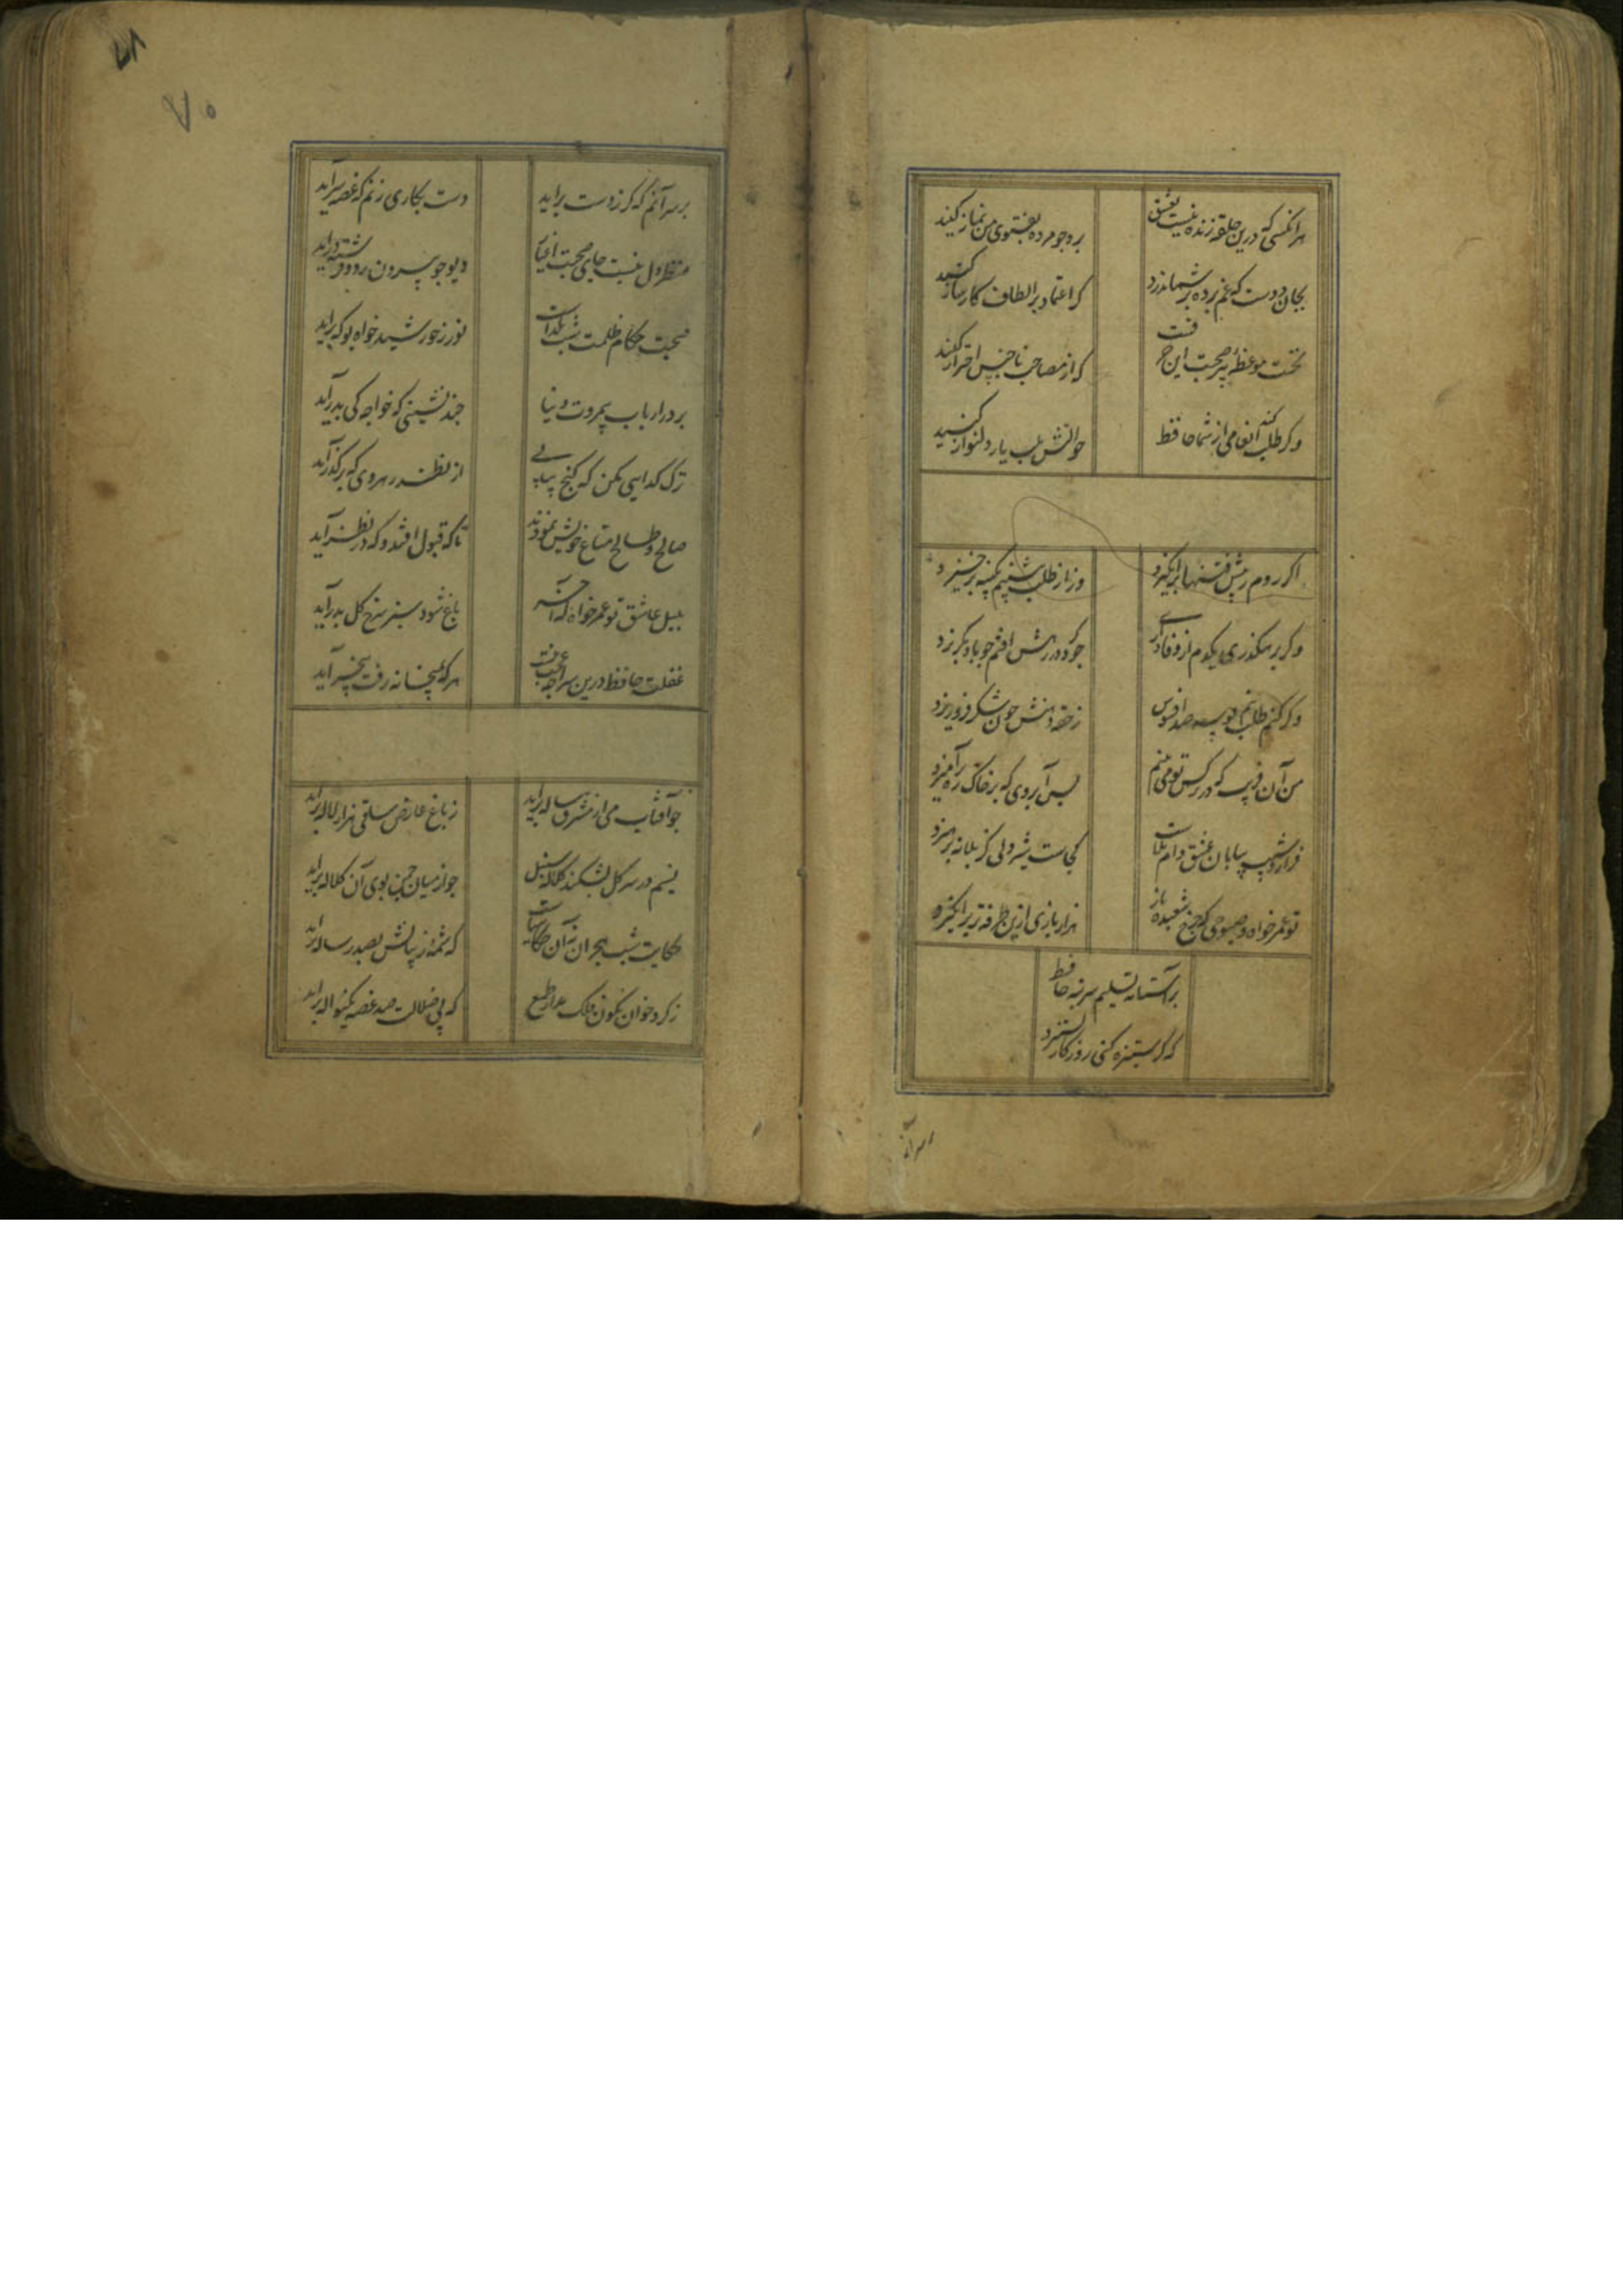 هر آنکسی که درین حلقه زنده نیست بعشق
برو چو مرده بفتوی من نماز کنید
بجان دوست که غم پرده بر شما ندرد
کر اعتماد بر الطاف کارساز کنید
نخست موعظه پیر صحبت این حرفست
که از مصاحب ناجنس احتراز کنید
وکر طلب کند انعامی از شما حافظ
حوالتش بلب یار دلنواز کنید
اکر روم ز پیش فتنها برانکیزد
ور از طلب بنشینم بکینه برخیزد
وکر برهکذری یکدم از وفاداری
چو کرد در رهش افتم چو باد بکریزد
وکر کنم طلب نیم بوسه صد افسوس
ز حقه دهنش چون شکر فروریزد
من آن فریب که در نرکس تو می بینم
بس آب روی که بر خاک ره برآمیزد
فراز و شیب بیابان عشق دام بلاست
کجاست شیردلی کز بلا نپرهیزد
تو عمر خواه و صبوری که چرخ شعبده باز
هزار بازی ازین طرفه تر برانکیزد
بر آستانه تسلیم سر بنه حافظ
که کر ستیزه کنی روزکار بستیزد
بر سر آنم
۷۸
۷۰
بر سر آنم که کر ز دست براید
دست بکاری زنم که غصه سراید
منظر دل نیست جای صحبت اغیار
دیو چو بیرون رود فرشته دراید
صحبت حکام ظلمت شب یلداست
نور ز خورشید خواه بو که براید
بر در ارباب بیمروت دنیا
چند نشینی که خواجه کی بدرآید
ترک کدایی مکن که کنج بیابی
از نظر رهروی که برکذرآید
صالح و طالح متاع خویش نمودند
تا که قبول افتد و که در نظر آید
بلبل عاشق تو عمر خواه که آخر
باغ شود سبز و سرخ کل بدرآید
غفلت حافظ درین سراچه عجب نیست
هر که بمیخانه رفت بیخبر آید
چو آفتاب می از مشرق پیاله براید
ز باغ عارض ساقی هزار لاله براید
نسیم در سر کل بشکند کلاله سنبل
چو از میان چمن بوی آن کلاله براید
حکایت شب هجران نه آن حکایت
که شمه ز بیانش بصد رساله براید
ز کرد خوان نکون فلک مدار طمع
که بی ملالت صد غصه یکنواله براید